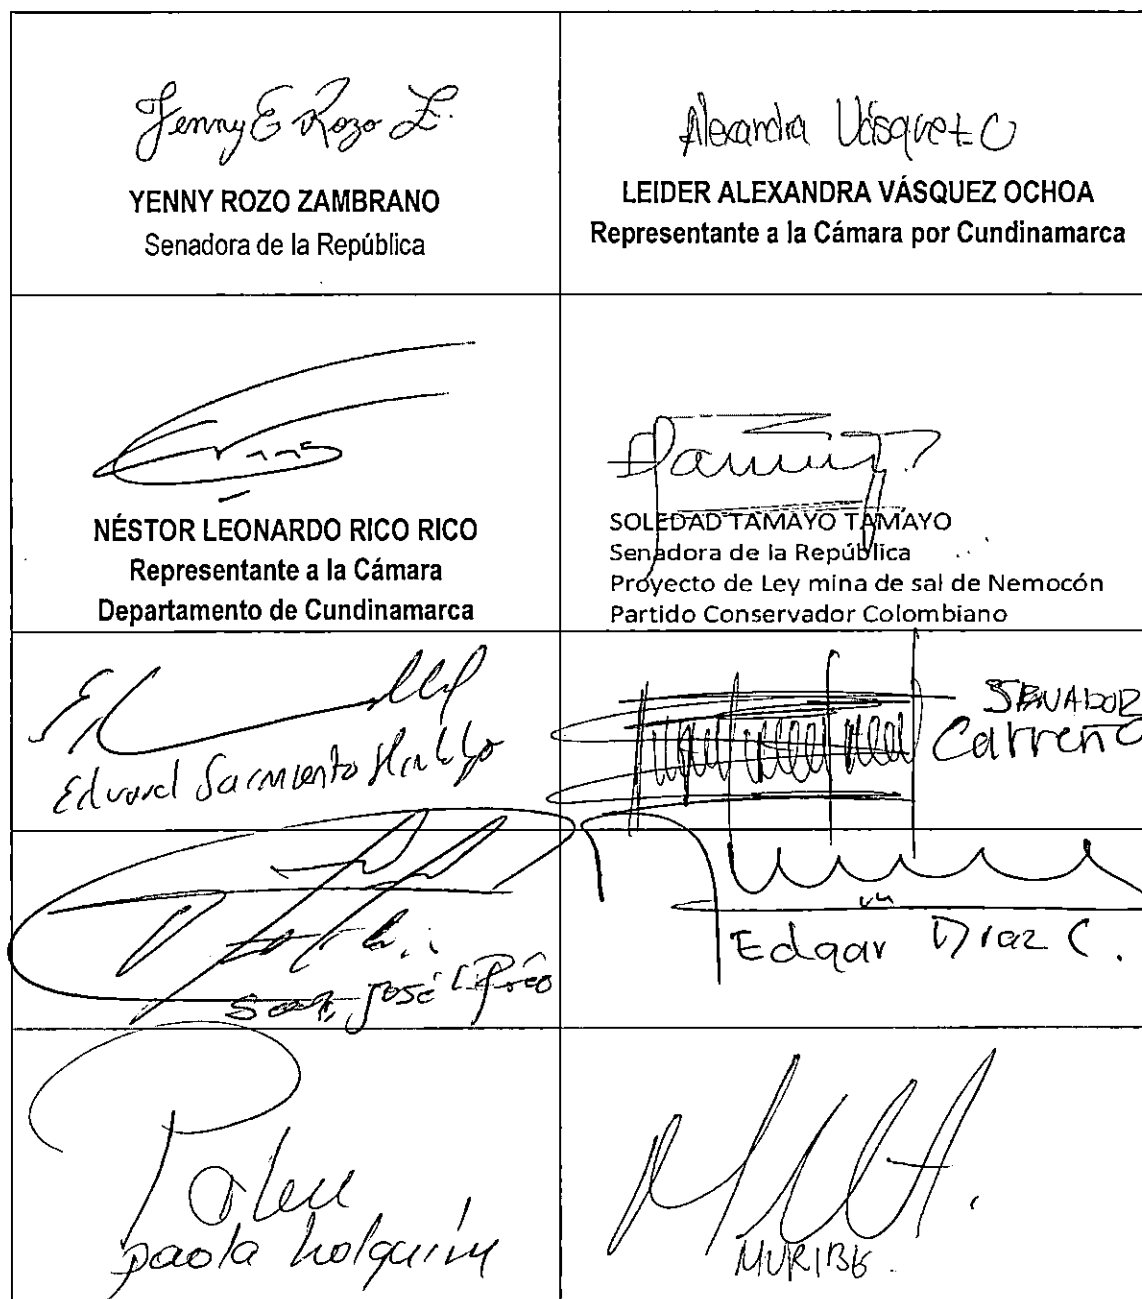 Yenny E Rozo Z.
YENNY ROZO ZAMBRANO
Senadora de la República
Alexandra Vásquez O
LEIDER ALEXANDRA VÁSQUEZ OCHOA
Representante a la Cámara por Cundinamarca
NÉSTOR LEONARDO RICO RICO
Representante a la Cámara
Departamento de Cundinamarca
SOLEDAD TAMAYO TAMAYO
Senadora de la República
Proyecto de Ley mina de sal de Nemocón
Partido Conservador Colombiano
Eduard Sarmiento Hidalgo
SENADOR
Carreño
José
Edgar Díaz C.
paola holguín
MURIBE